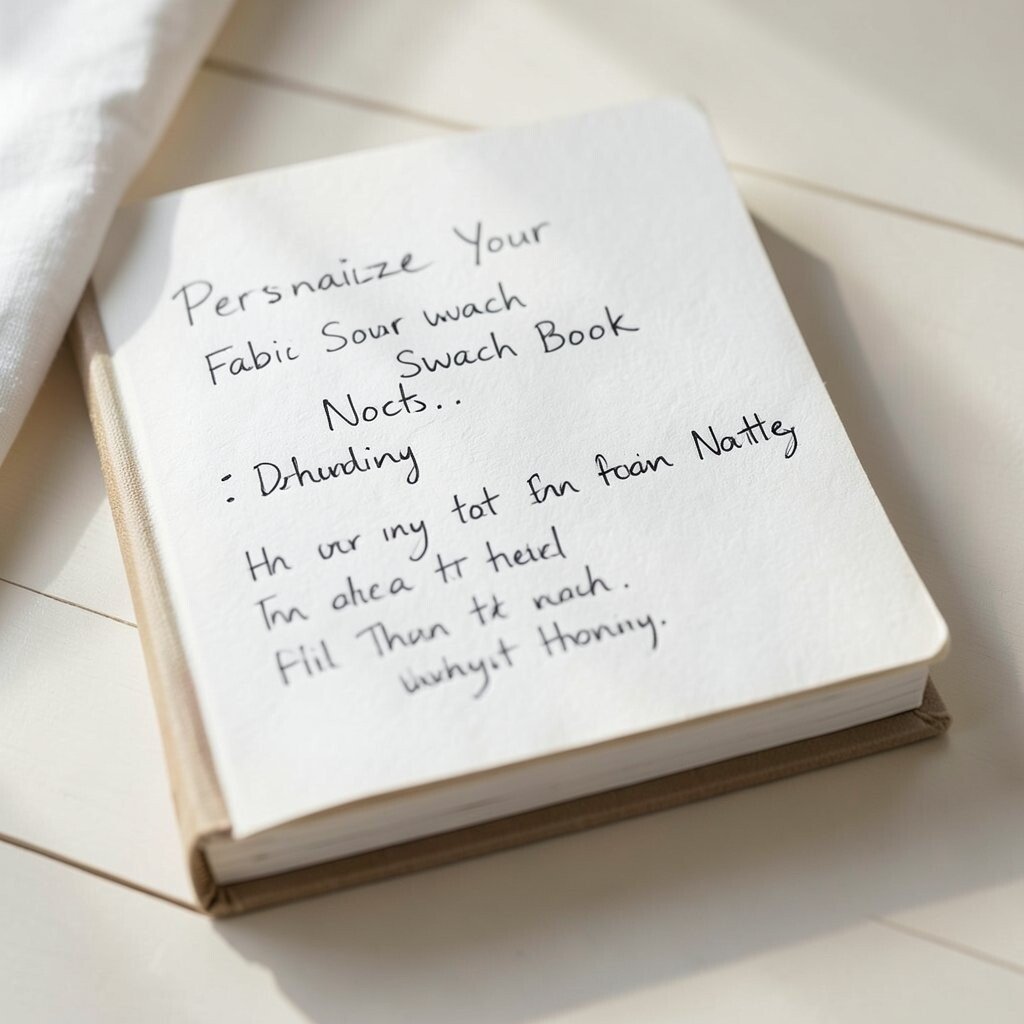 Persnailze Your
Fabic Sour wach
Swach Book
Nocts..
: Drhurdiny
Hn uur iny tot Enn foain Natte
Inn ahca tr heid
Flil Than tk nach.
Hhonny.